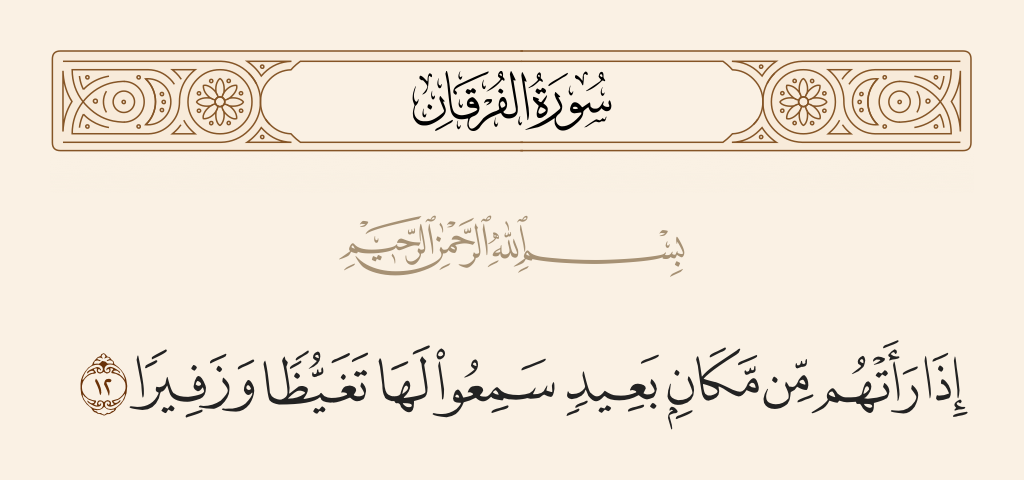 سُورَةُ الفُرْقَانِ
بِسْمِ ٱللَّهِ ٱلرَّحْمَٰنِ ٱلرَّحِيمِ
إِذَا رَأَتْهُم مِّن مَّكَانٍۭ بَعِيدٍ سَمِعُوا۟ لَهَا تَغَيُّظًا وَزَفِيرًا ١٢